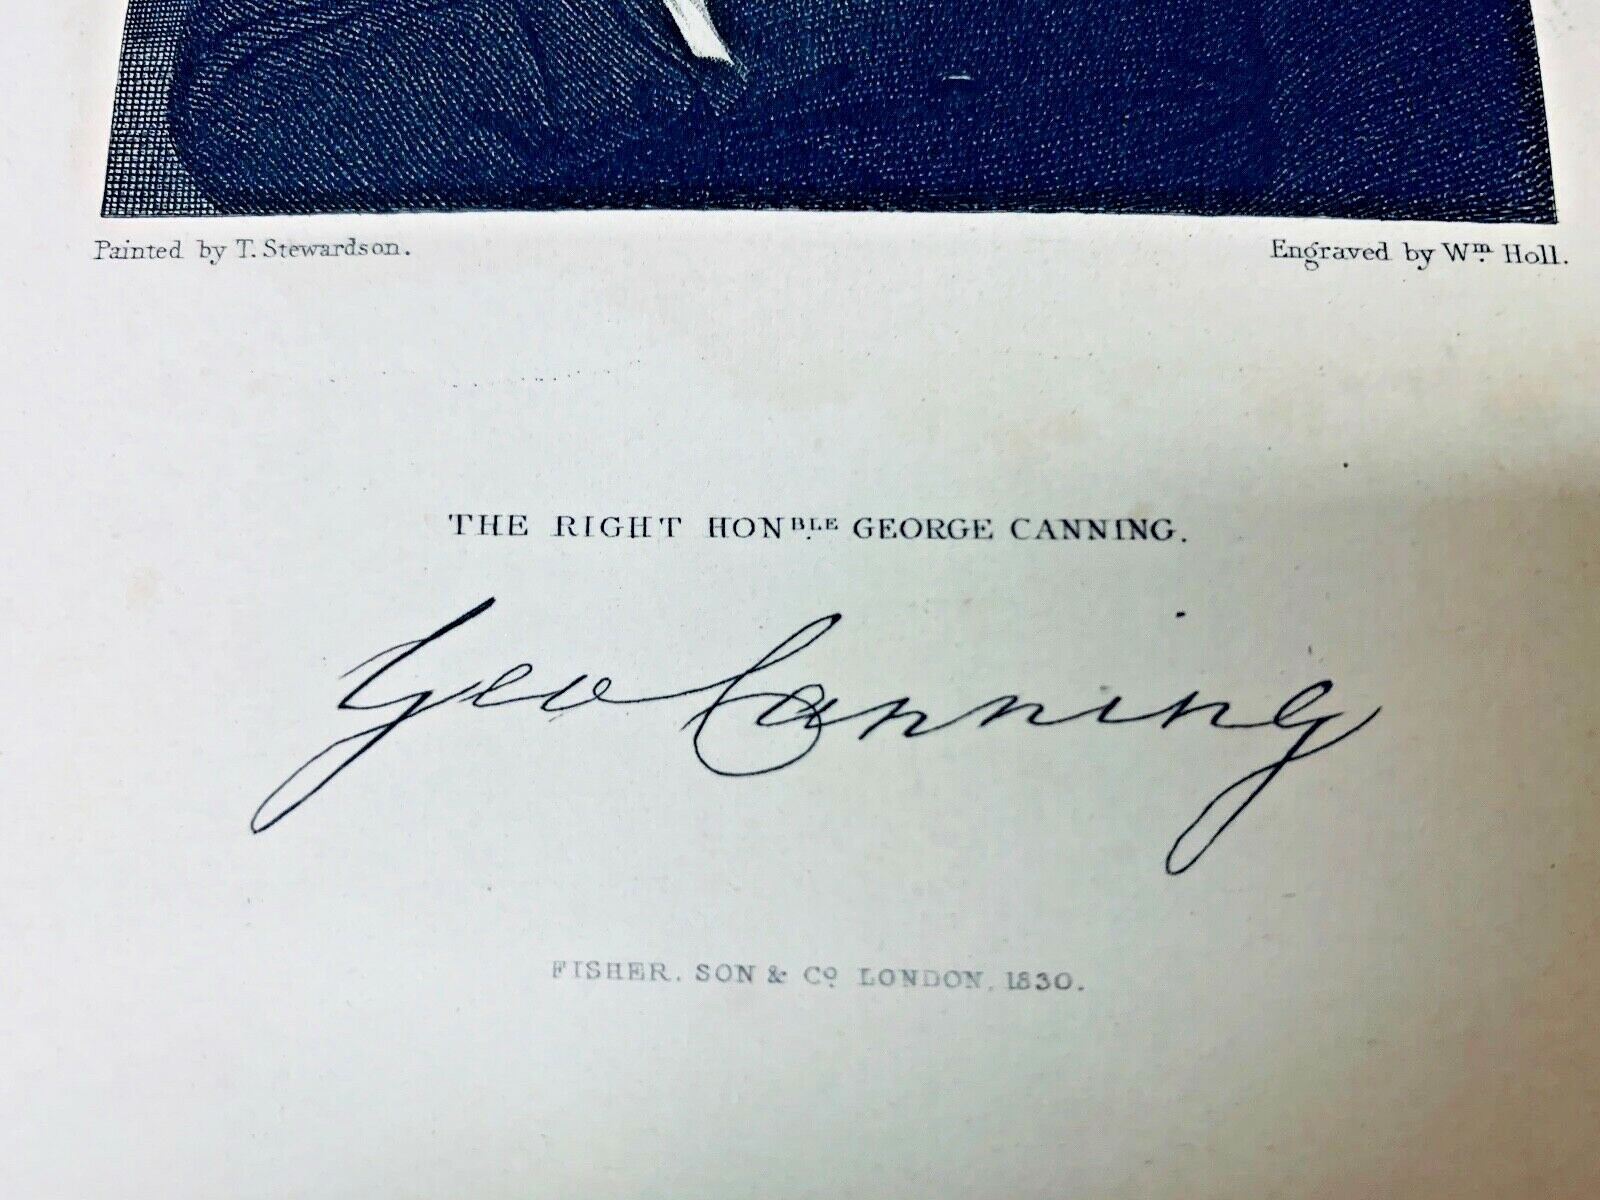 Painted by T. Stewardson.
Engraved by Wm. Holl.
THE RIGHT HONBLE. GEORGE CANNING.
Geo Canning
FISHER, SON & Co. LONDON, 1830.